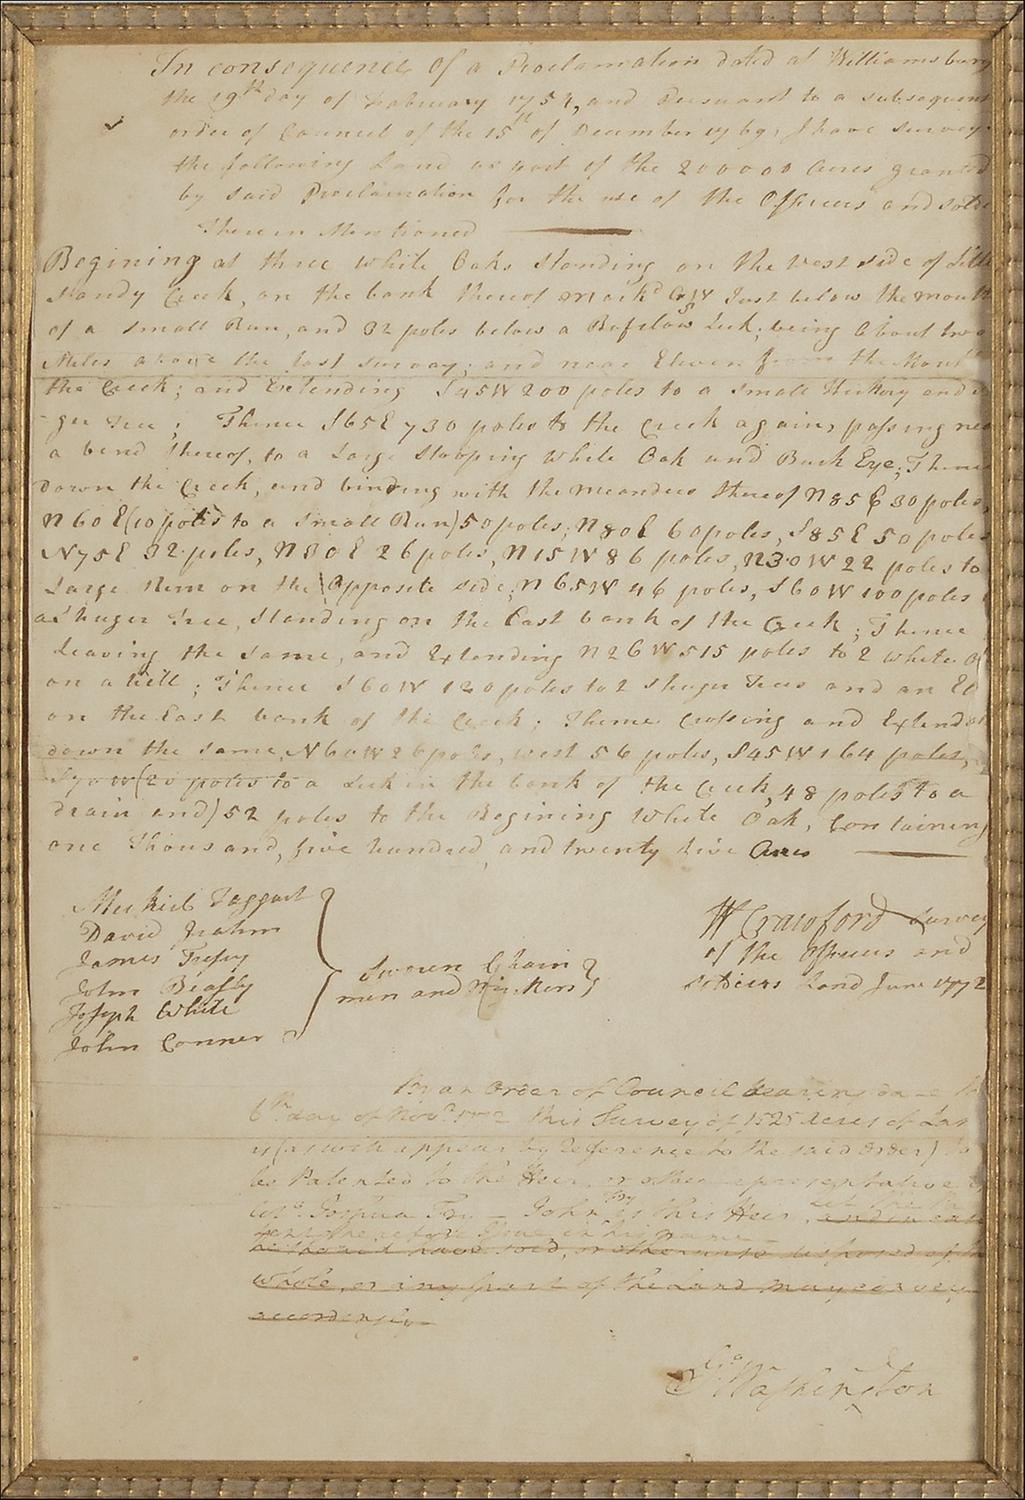 In consequence of a Proclamation dated at Williamsburg
the 19th day of February 1754, and Pursuant to a subsequent
order of Council of the 15th of December 1769, I have survey
the following Land as part of the 200000 Acres granted
by said Proclamation for the use of the Officers and sold
There in Mentioned
Begining at three White Oaks Standing on the West side of Litt
Sandy Creek, on the bank thereof mark'd GW Just below the mout
of a Small Run, and 32 poles below a Buffalow Lick; being about two
Miles above the last survey; and near Eleven from the Mouth
the Creek; and Extending S45W 200 poles to a Small Hickory and
ger Tree; Thence S65E 730 poles to the Creek again, passing nea
a bend thereof, to a Large Stooping White Oak and Buck Eye; Thence
down the Creek, and binding with the meanders thereof N85E 30 poles,
N60E (10 poles to a Small Run) 50 poles; N80E 60 poles, S85E 50 poles
N75E 32 poles, N30E 26 poles, N15W 86 poles, N30W 22 poles to
Large on the Opposite side; N65W 46 poles, S60W 100 poles
a Shuger Tree, Standing on the East bank of the Creek; Thence
Leaving the same, and Extending N26W 515 poles to 2 white O
on a hill; Thence S60W 120 poles to 2 Shuger Trees and an El
on the East bank of the Creek. Thence Crossing and Extend
down the same, N60W 26 poles, west 56 poles, S45W 164 poles,
S70W (20 poles to a Lick in the bank of the Creek, 48 poles to a
drain and) 52 poles to the Begining White Oak, Containing
one Thousand, five hundred, and twenty five Acres
Taggart
David
James
John
Joseph White
John Conner
Sworen Chain
men and Markers
W Crawford Survey
of the Officers and
soldiers Land June 1772
By an Order of Council bearing date
6th day of Novr 1772 this Survey of 1525 Acres of Lan
is (as will appear by Reference to the said Order) to
be Patented to the Heir, or other representative
Joshua Fry — John Fry is this Heir, and in case
issue in his name —
he should have sold, or otherwise disposed of th
whole, or any part of the Land may convey
accordingly
Go Washington